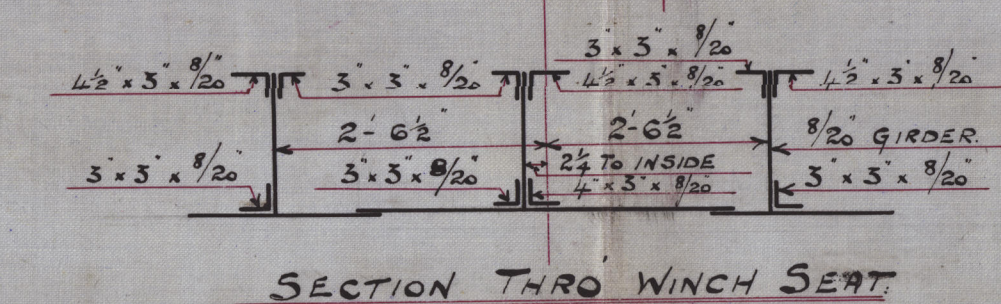 3" x 3" x 8/20"
4½" x 3" x 8/20" 3" x 3" x 8/20" 4½" x 3" x 8/20" 4½" x 3" x 8/20"
2'- 6½" 2'- 6½" 8/20" GIRDER.
2¼ TO INSIDE
3" x 3" x 8/20" 3" x 3" x 8/20" 4" x 3" x 8/20" 3" x 3" x 8/20"
SECTION THRO' WINCH SEAT.